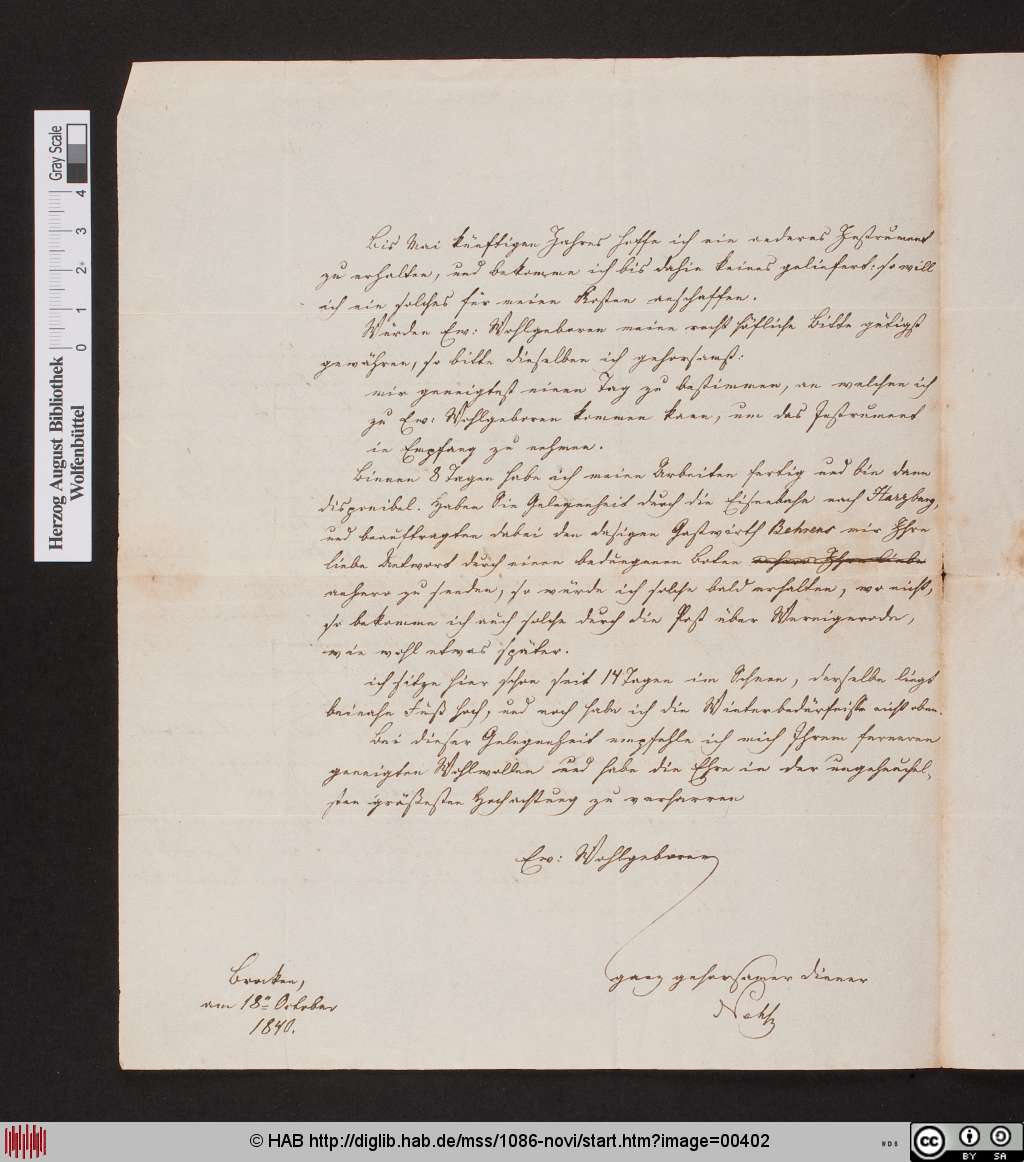 Bis Mai künftigen Jahres hoffe ich ein anderes Instrument
zu erhalten, und bekomme ich bis dahin keines geliefert: so will
ich ein solches für meine Kosten anschaffen.
Würden Ew: Wohlgeboren meine recht höfliche Bitte gütigst
gewähren, so bitte dieselben ich gehorsamst:
mir geneigtest einen Tag zu bestimmen, an welchen ich
zu Ew: Wohlgeboren kommen kann, um das Instrument
in Empfang zu nehmen.
Binnen 8 Tagen habe ich meine Arbeiten fertig und bin dann
disponibel. Haben Sie Gelegenheit durch die Eisenbahn nach Harzburg,
und beauftragten dabei den dasigen Gastwirth Behrens mir Ihre
liebe Antwort durch einen bedungenen Boten Ihre liebe
anhero zu senden, so würde ich solche bald erhalten, wo nicht,
so bekomme ich auch solche durch die Post über Wernigerode,
wie wohl etwas später.
ich sitze hier schon seit 14 Tagen im Schnee, derselbe liegt
beinahe Fuß hoch, und noch habe ich die Winterbedürfnisse nicht oben.
Bei dieser Gelegenheit empfehle ich mich Ihrem ferneren
geneigten Wohlwollen und habe die Ehre in der ungeheuchel-
sten größesten Hochachtung zu verharren
Ew: Wohlgeboren
ganz gehorsamer Diener
Nehse
Brocken,
am 18n October
1840.
Herzog August Bibliothek
Wolfenbüttel
0 1 2 3 4
Gray Scale
© HAB http://diglib.hab.de/mss/1086-novi/start.htm?image=00402
WDB
cc BY SA